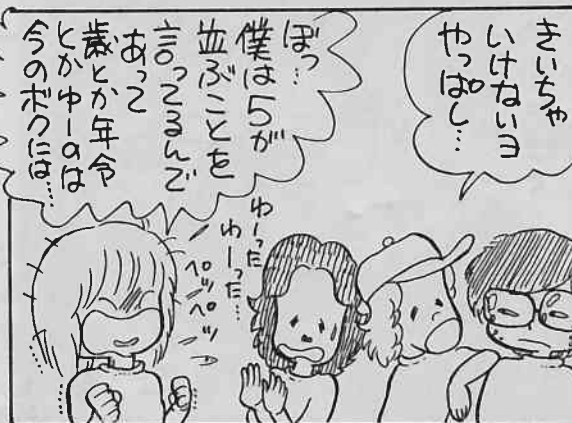 きいちゃ
いけないヨ
やっぱし…
ぼっ…
僕は5が
並ぶことを
言ってるんで
あって
歳とか年令
とかゆーのは
今のボクには……
わーった
わーった…
ペッペッ